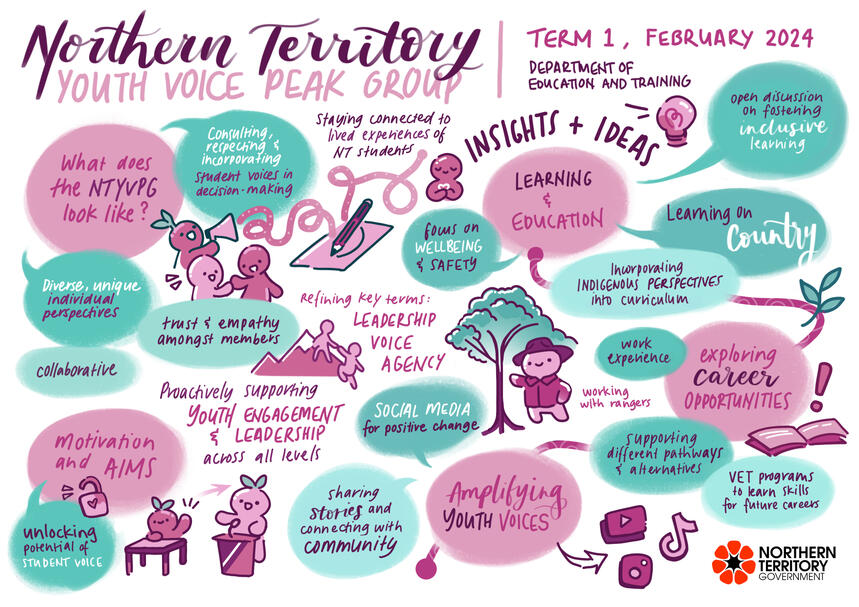 Northern Territory
YOUTH VOICE PEAK GROUP
TERM 1, FEBRUARY 2024
DEPARTMENT OF
EDUCATION AND TRAINING
What does
the NTYVPG
look like?
Consulting,
respecting &
incorporating
student voices in
decision-making
Staying connected to
lived experiences of
NT students
Diverse, unique
individual
perspectives
trust & empathy
amongst members
collaborative
Refining key terms:
LEADERSHIP
VOICE
AGENCY
Proactively supporting
YOUTH ENGAGEMENT
& LEADERSHIP
across all levels
Motivation
and AIMS
unlocking
potential of
STUDENT VOICE
INSIGHTS + IDEAS
LEARNING
&
EDUCATION
open discussion
on fostering
inclusive
learning
focus on
WELLBEING
& SAFETY
Learning on
Country
Incorporating
INDIGENOUS PERSPECTIVES
into curriculum
exploring
career
OPPORTUNITIES
work
experience
working
with rangers
supporting
different pathways
& alternatives
VET programs
to learn skills
for future careers
SOCIAL MEDIA
for positive change
Amplifying
YOUTH VOICES
sharing
stories and
connecting with
community
NORTHERN
TERRITORY
GOVERNMENT